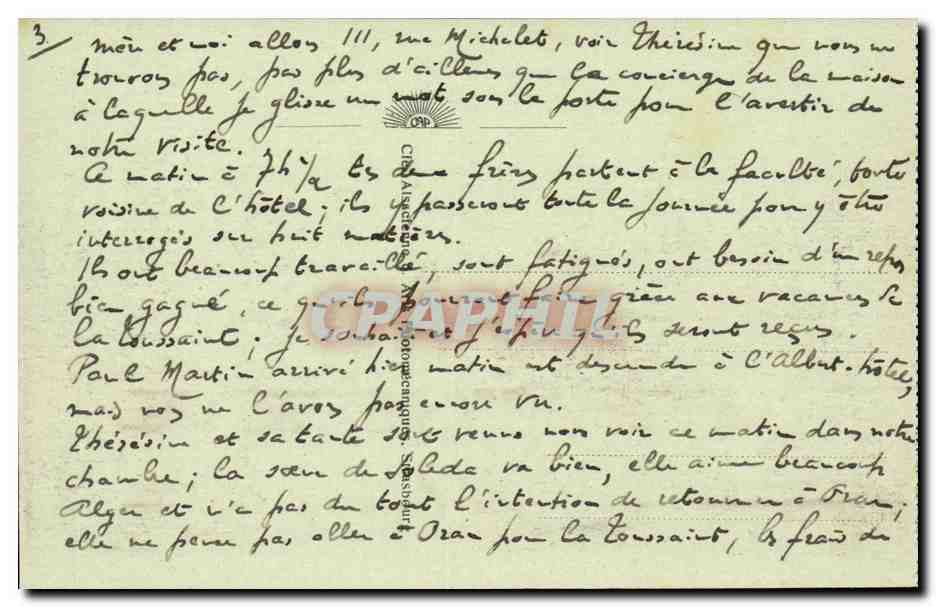 3/
mère et moi allons 111, rue Michelet, voir Thérésine que nous ne
trouvons pas, pas plus d'ailleurs que la concierge de la maison
à laquelle je glisse un mot sous la porte pour l'avertir de
notre visite.
CAP
Ce matin à 7h 1/2 tes deux frères partent à la faculté, toute
voisine de l'hôtel; ils y passeront toute la journée pour y être
interrogés sur huit matières.
Ils ont beaucoup travaillé, sont fatigués, ont besoin d'un repos
bien gagné, ce qu'ils pourront faire grâce aux vacances de
la Toussaint; je souhaite et j'espère qu'ils seront reçus.
Paul Martin arrivé hier matin est descendu à l'Albert-hôtel,
mais nous ne l'avons pas encore vu.
Thérésine et sa tante sont venues nous voir ce matin dans notre
chambre; la sœur de va bien, elle aime beaucoup
Alger et n'a pas du tout l'intention de retourner à Oran;
elle ne pense pas aller à Oran pour la Toussaint, les frais de
Cie Alsacienne Arts Photomécaniques Strasbourg
CPAPHIL